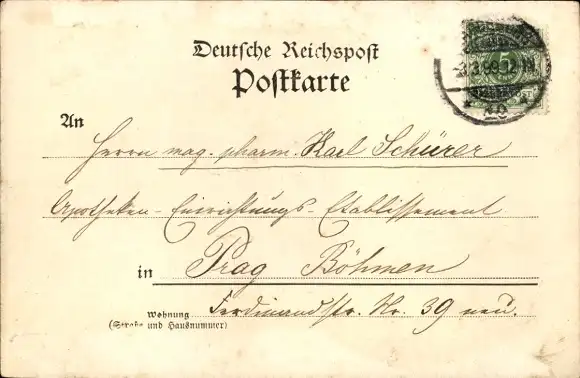 Deutsche Reichspost
Postkarte
An
Herrn mag. pharm. Karl Schürer
Apotheken-Einrichtungs-Etablissement
in Prag Böhmen
Wohnung Ferdinandstr. Nr. 39 neu.
(Straße und Hausnummer)
5